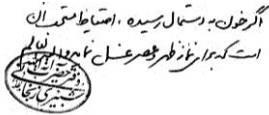 اگر خون به دستمال رسیده، احتیاط مستحب آن
است که برای نماز ظهر و عصر غسل نماید و الله العالم